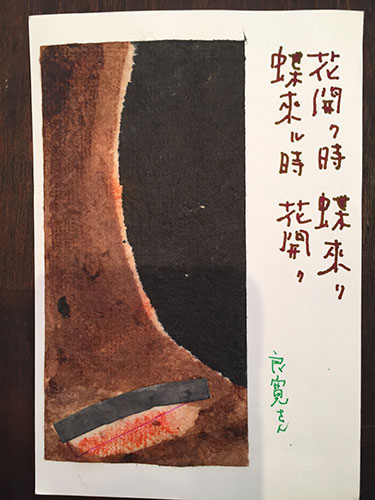 花開ク時 蝶來リ
蝶來ル時 花開ク
良寛さん